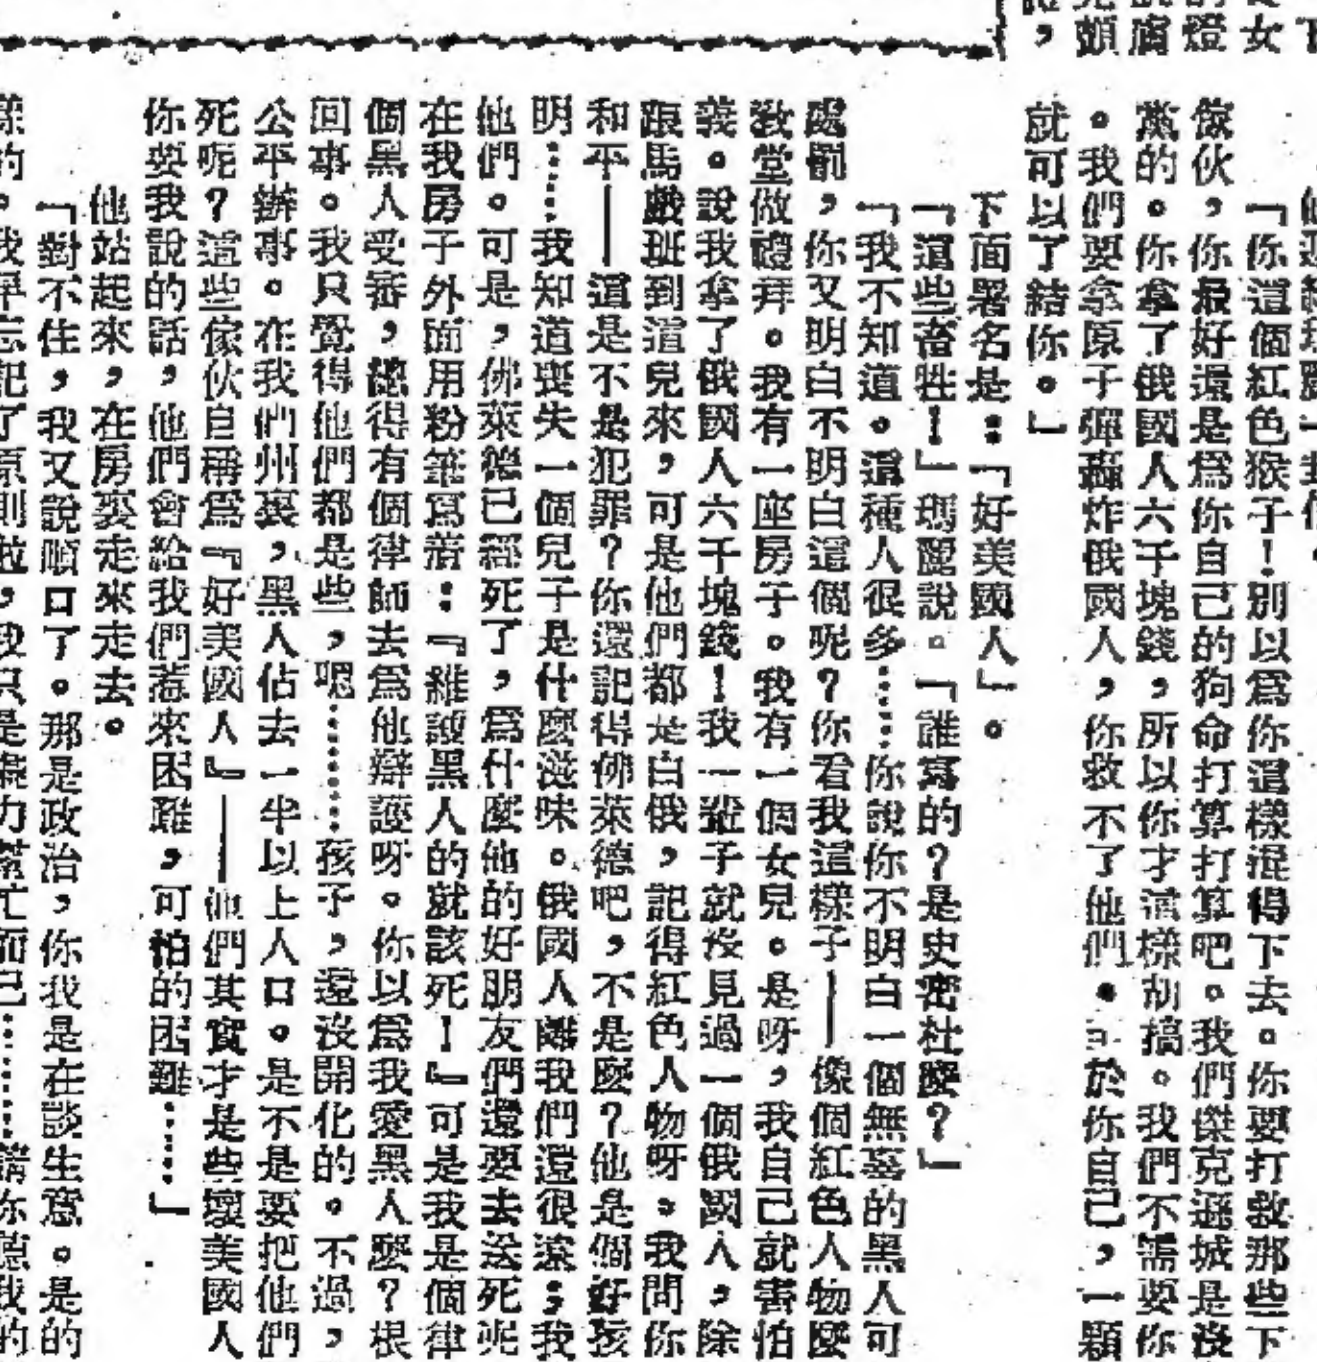 下
女
燈
腐
頗
，
「你這個紅色猴子！別以爲你這樣混得下去。你要打救那些下
傢伙，你最好還是爲你自己的狗命打算打算吧。我們傑克遜城是沒
黨的。你拿了俄國人六千塊錢，所以你才這樣胡搞。我們不需要你
。我們要拿原子彈轟炸俄國人，你救不了他們。於你自己，一顆
就可以了結你。」
下面署名是：「好美國人」。
「這些畜牲！」瑪麗說。「誰寫的？是史密杜麼？」
「我不知道。這種人很多……你說你不明白一個無辜的黑人可
處罰，你又明白不明白這個呢？你看我這樣子——像個紅色人物麼
教堂做禮拜。我有一座房子。我有一個女兒。是呀，我自己就害怕
義。說我拿了俄國人六千塊錢！我一輩子就沒見過一個俄國人，除
跟馬戲班到這兒來，可是他們都是白俄，記得紅色人物呀。我問你
和平——這是不是犯罪？你還記得佛萊德吧，不是麼？他是個好孩
明……我知道喪失一個兒子是什麼滋味。俄國人離我們還很遠；我
他們。可是，佛萊德已經死了，爲什麼他的好朋友們還要去送死呢
在我房子外面用粉筆寫着：『維護黑人的就該死！』可是我是個律
個黑人受審，總得有個律師去爲他辯護呀。你以爲我愛黑人麼？根
回事。我只覺得他們都是些，嗯……孩子，還沒開化的。不過，
公平辦事。在我們州裏，黑人佔去一半以上人口。是不是要把他們
死呢？這些傢伙自稱爲『好美國人』——他們其實才是些壞美國人
你要我說的話，他們會給我們惹來困難，可怕的困難……」
他站起來，在房裏走來走去。
「對不住，我又說順口了。那是政治，你我是在談生意。是的
樣的。我平忘記了原則啦，我只是盡力幫忙而已……請你聽我的